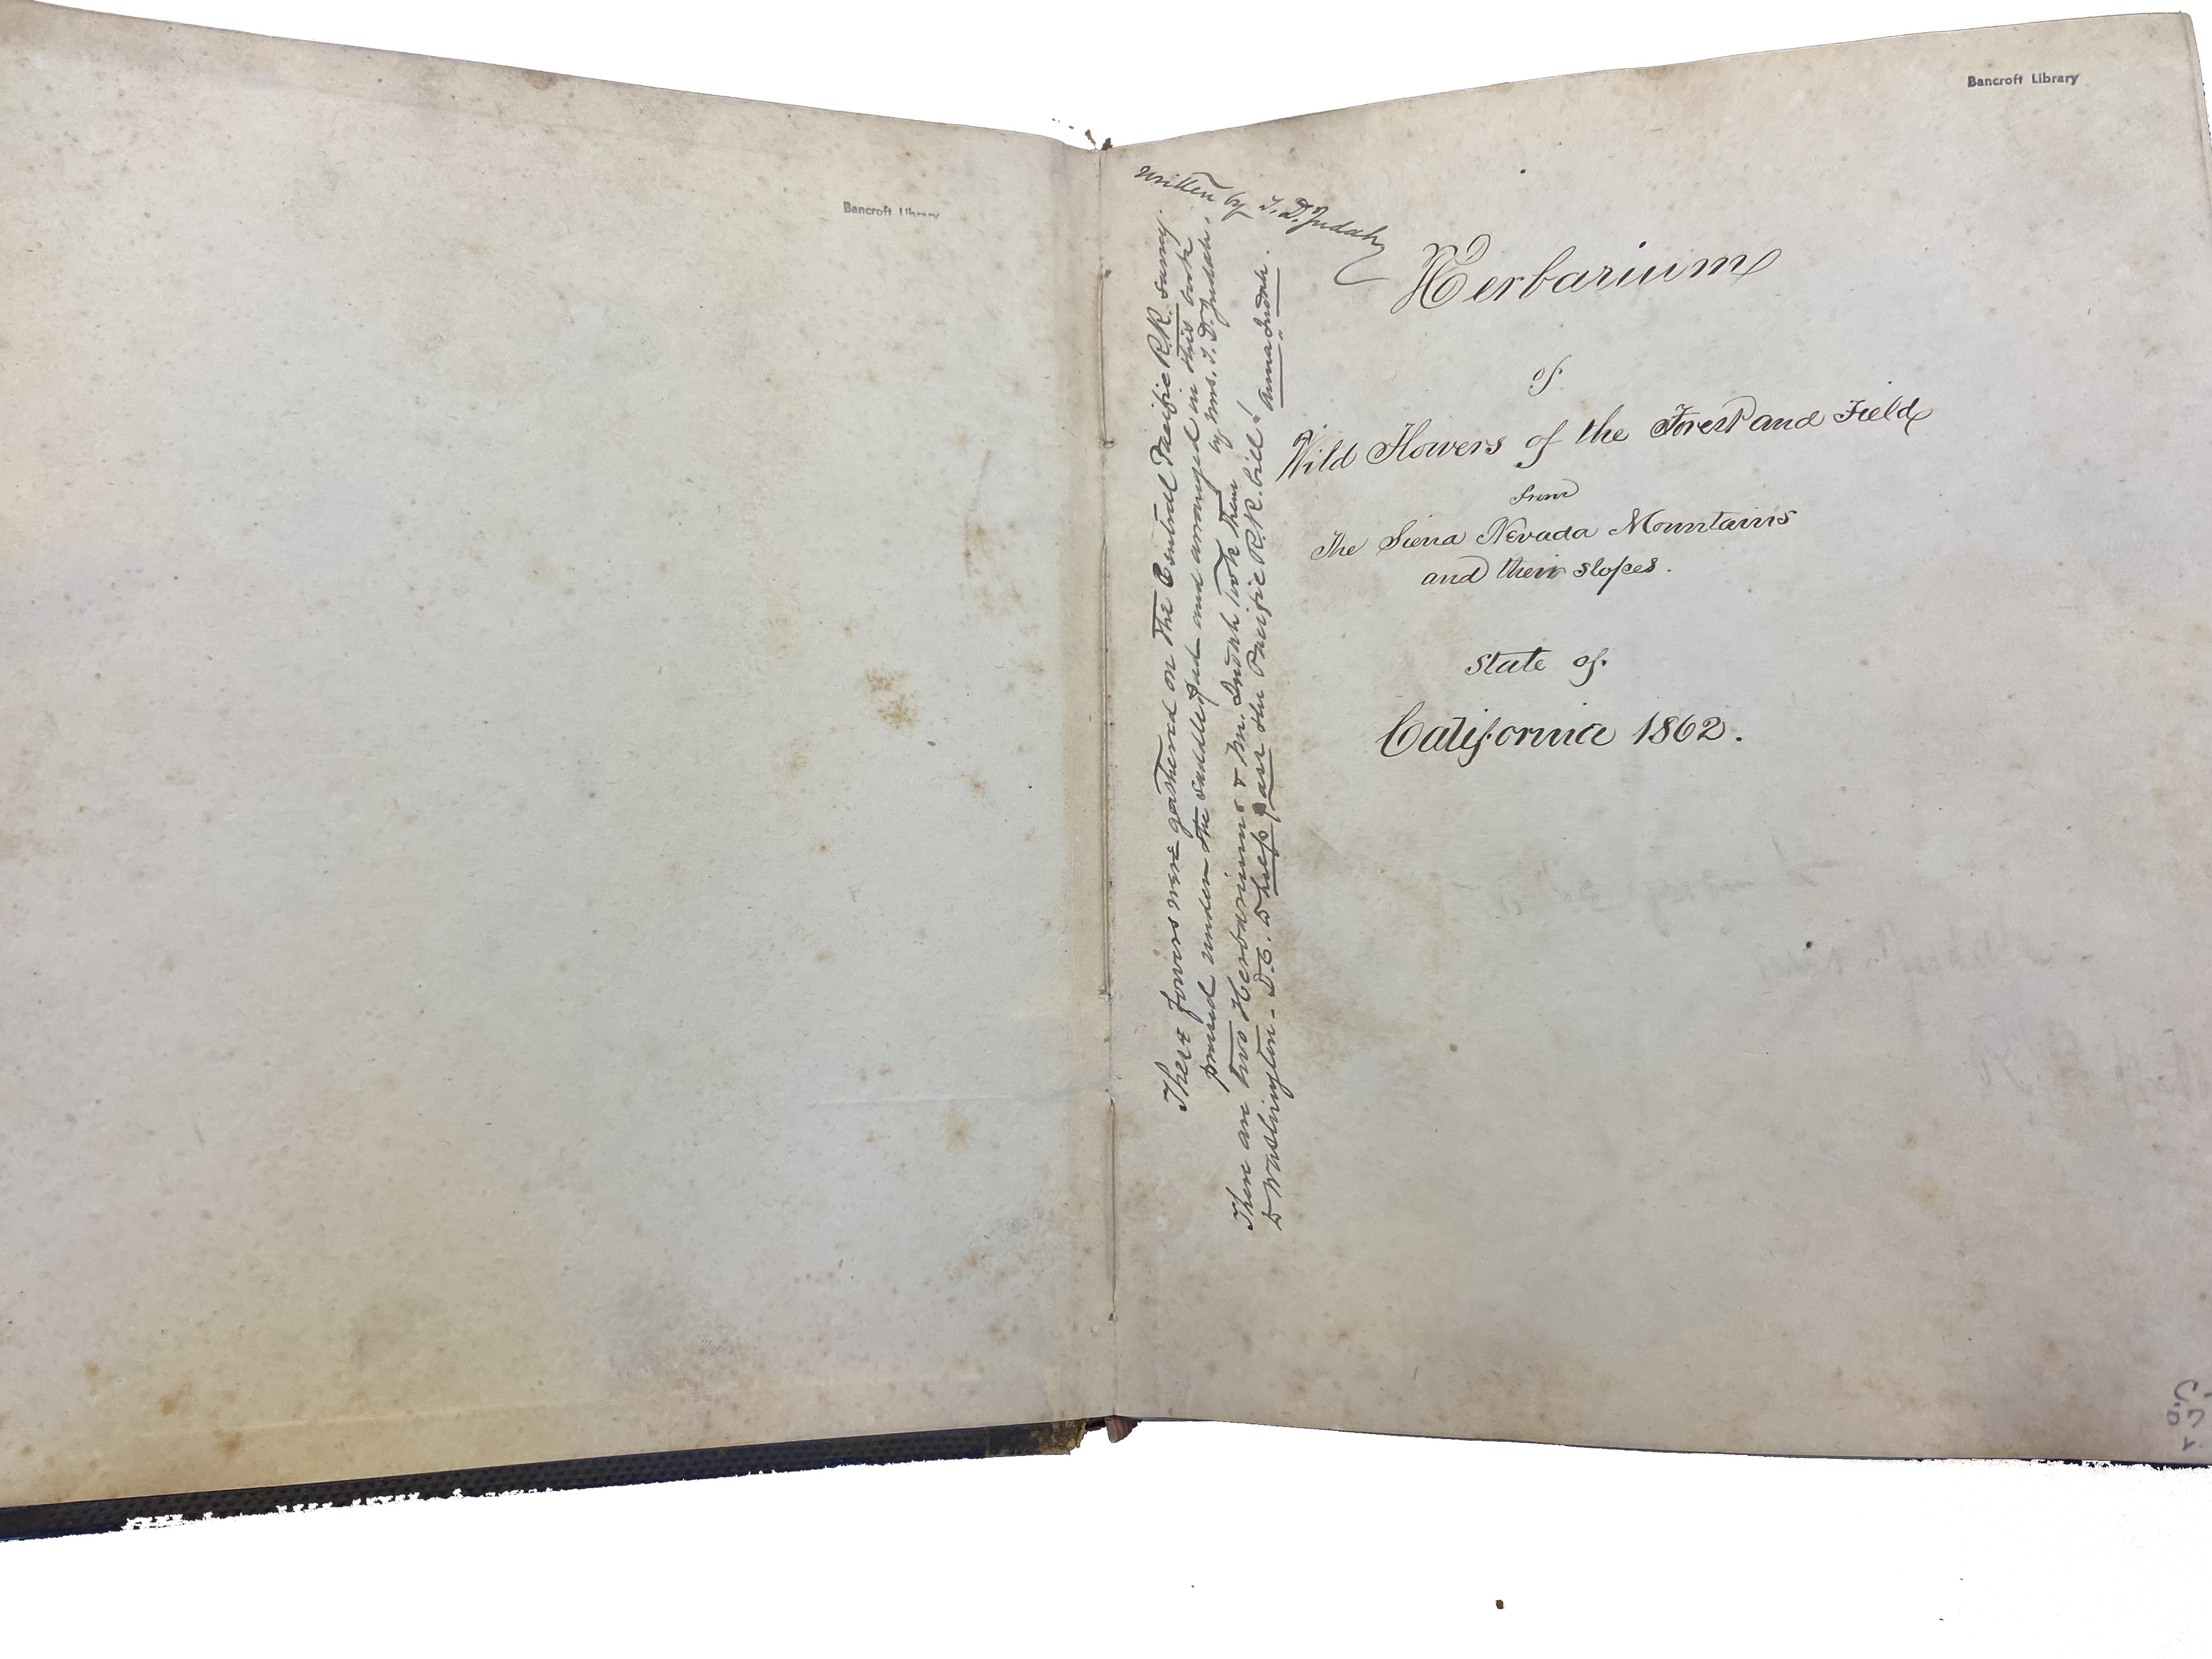 Bancroft Library
Bancroft Library
written by T. D. Judah
Herbarium
of
Wild Flowers of the Forest and Field
from
The Sierra Nevada Mountains
and their slopes.
State of
California 1862.
These flowers were gathered on the Central Pacific R.R. survey.
pressed under the saddle pad and arranged in this book
by Mrs. T. D. Judah.
There are two Herbariums & Mr. Judah took them
to Washington - D.C. to help pass the Pacific R.R. bill!
Anna Judah.